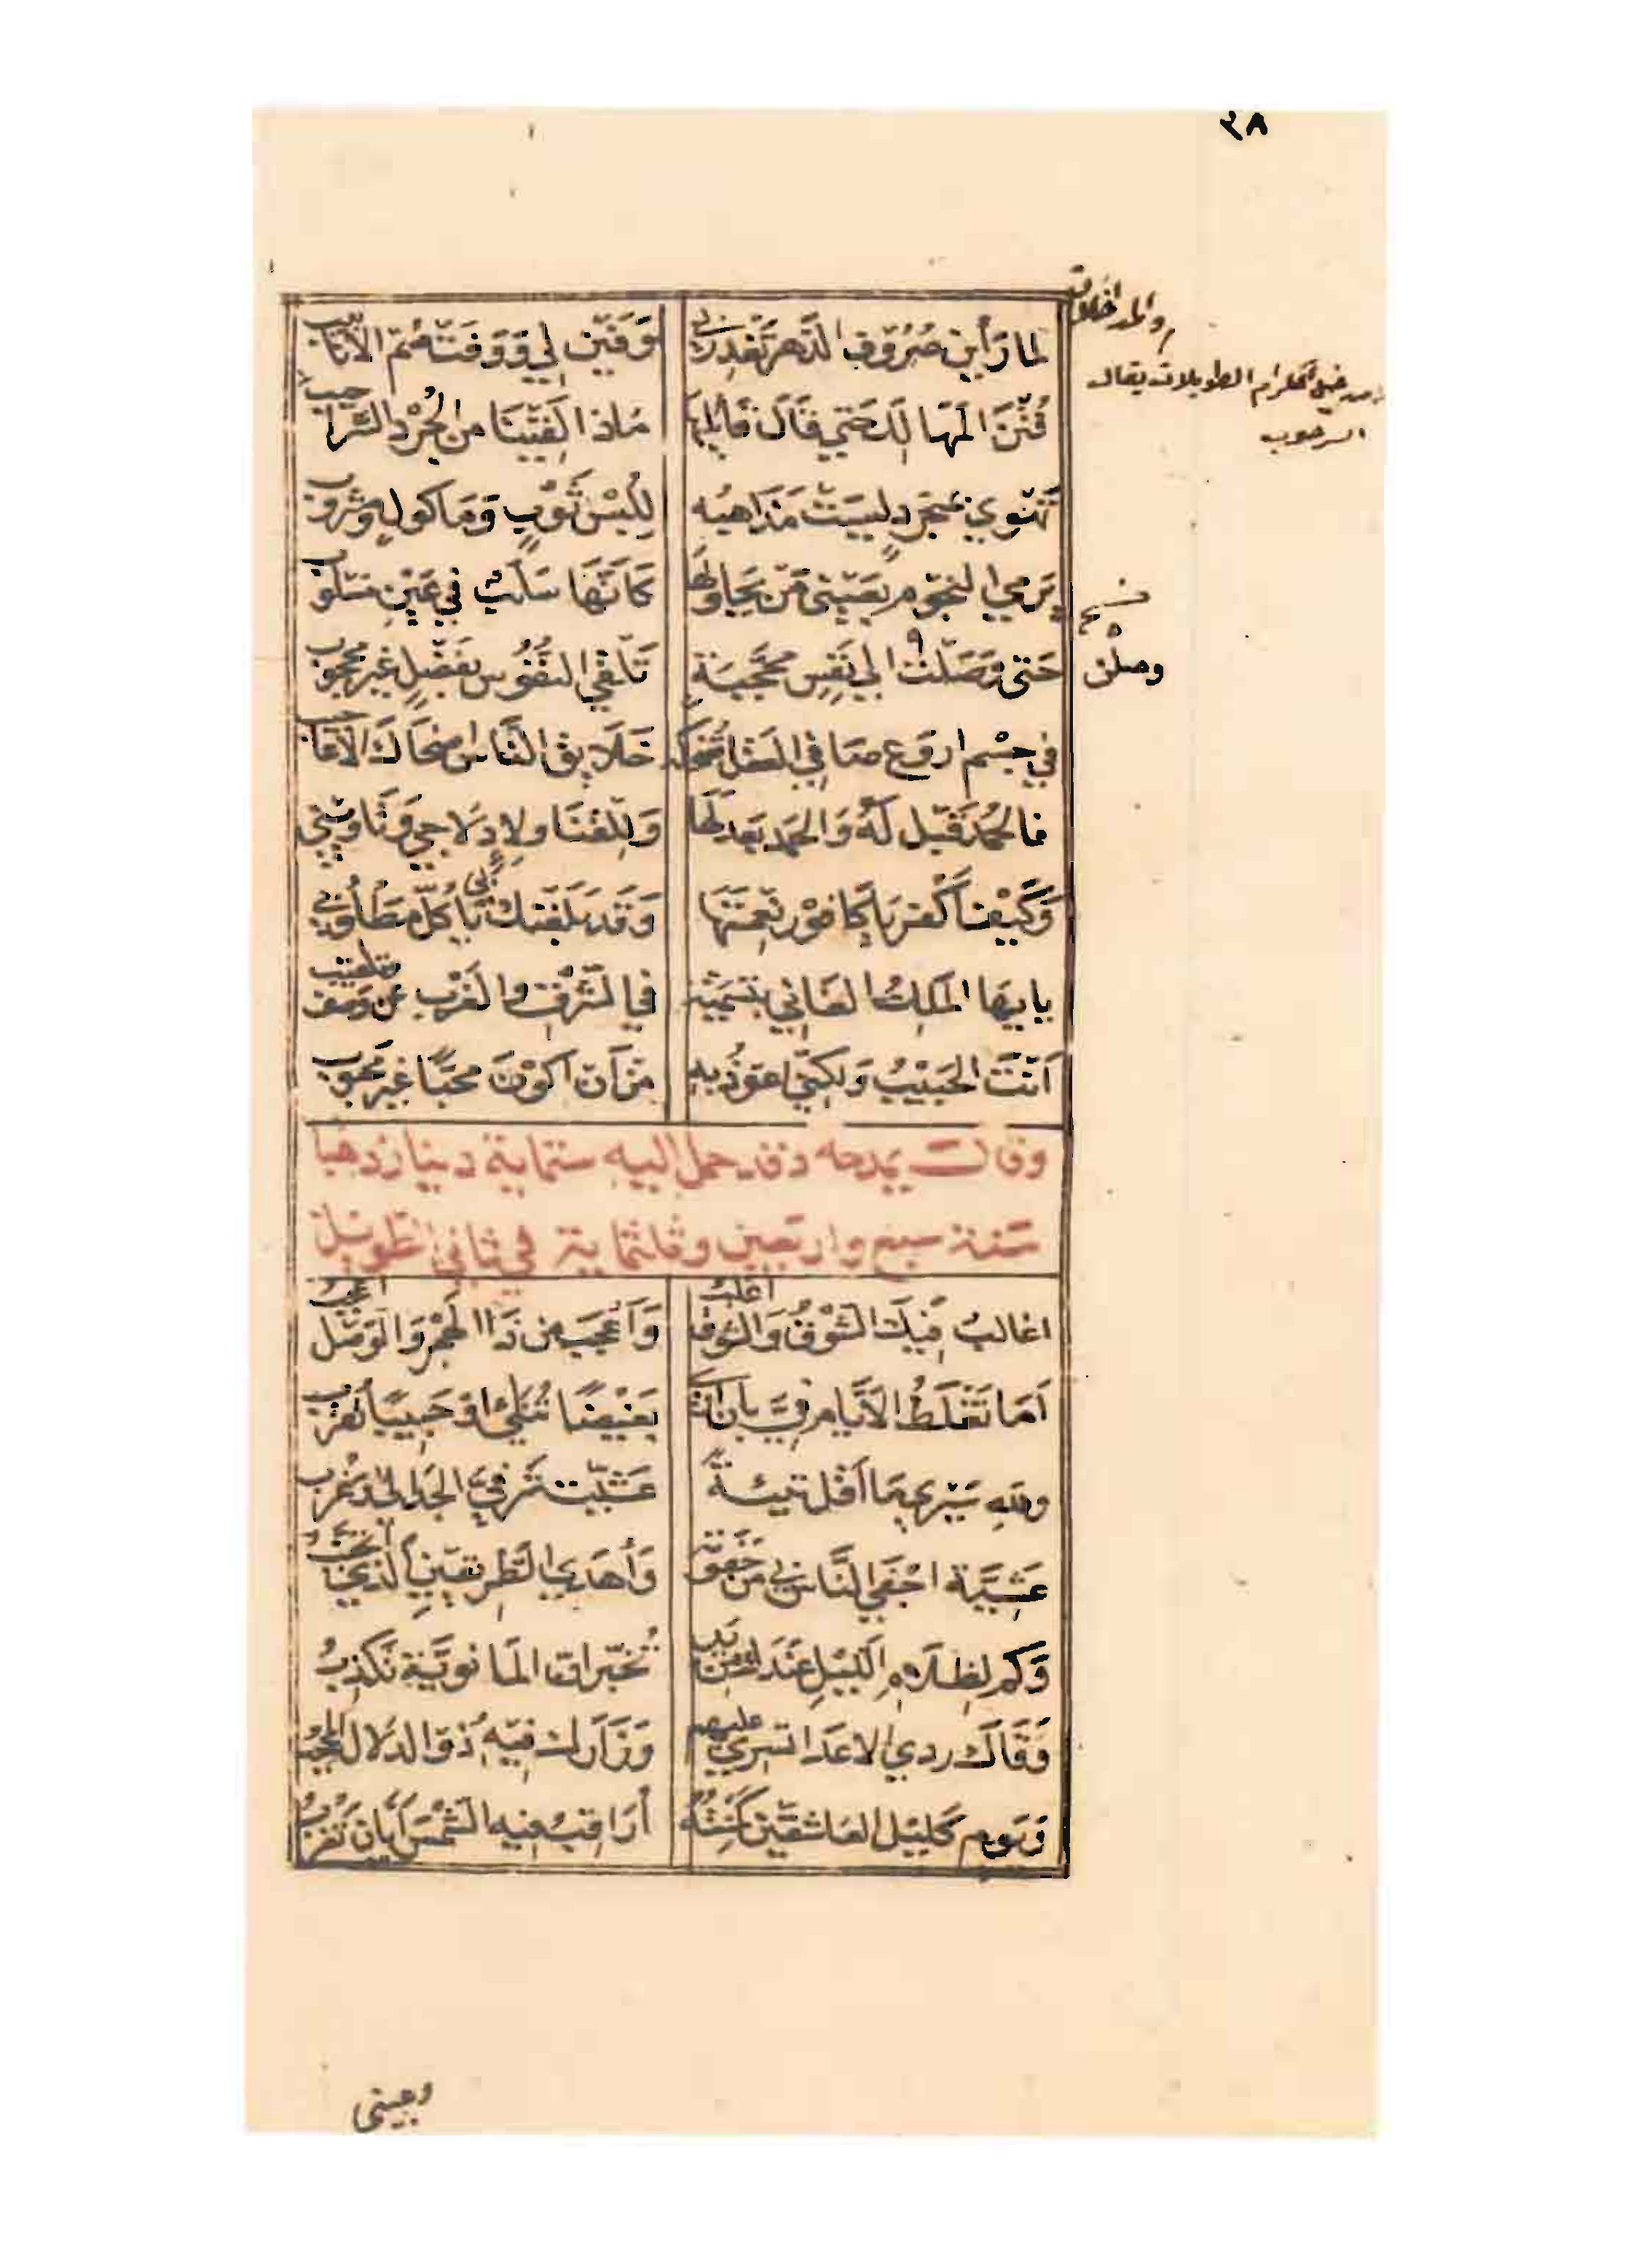 ٣٨
لما رأين صروف الدهر تغدر بي وفين لي ووفت صم الأنابيب
فتن المهالك حتى قال قائلها ماذا لقينا من الجرد السراحيب
تهوي بمنجرد ليست مذاهبه للبس ثوب ومأكول ومشروب
يرمي النجوم بعيني من يحاولها كأنها سلب في عين مسلوب
حتى وصلت إلى نفس محجبة تلقى النفوس بفضل غير محجوب
في جسم اروع صافي العقل تضحكه خلايق الناس اضحاك الاعاجيب
فالحمد قبل له والحمد بعد لها وللقنا ولادلاجي وتأويبي
وكيف أكفر يا كافور نعمتها وقد بلغنك بي يا كل مطلوبي
يا ايها الملك الغاني بتسمية في الشرق والغرب عن وصف وتلقيب
أنت الحبيب ولكني اعوذ به من أن أكون محبا غير محبوب
وقال يمدحه وقد حمل اليه ستماية دينار ذهبا
سنة سبع واربعين وثلثماية في ثاني الطويل
اغالب فيك الشوق والشوق اغلب وأعجب من ذا الهجر والوصل اعجب
أما تغلط الأيام في بأن أرى بغيضا تنائي او حبيبا تقرب
ولله سيري ما أقل تئية عشية شرقي الحدالى وغرب
عشية احفى الناس بي من جفوته وأهدى الطريقين الذي أتجنب
وكم لظلام الليل عندك من يد تخبر ان المانوية تكذب
وقاك ردى الاعدا تسري عليهم وزارك فيه ذو الدلال المحجب
ويوم كليل العاشقين كمنته أراقب فيه الشمس أيان تغرب
الكرام الطويلات يقال
السرحوب
نسخ
وصلن
وعيني